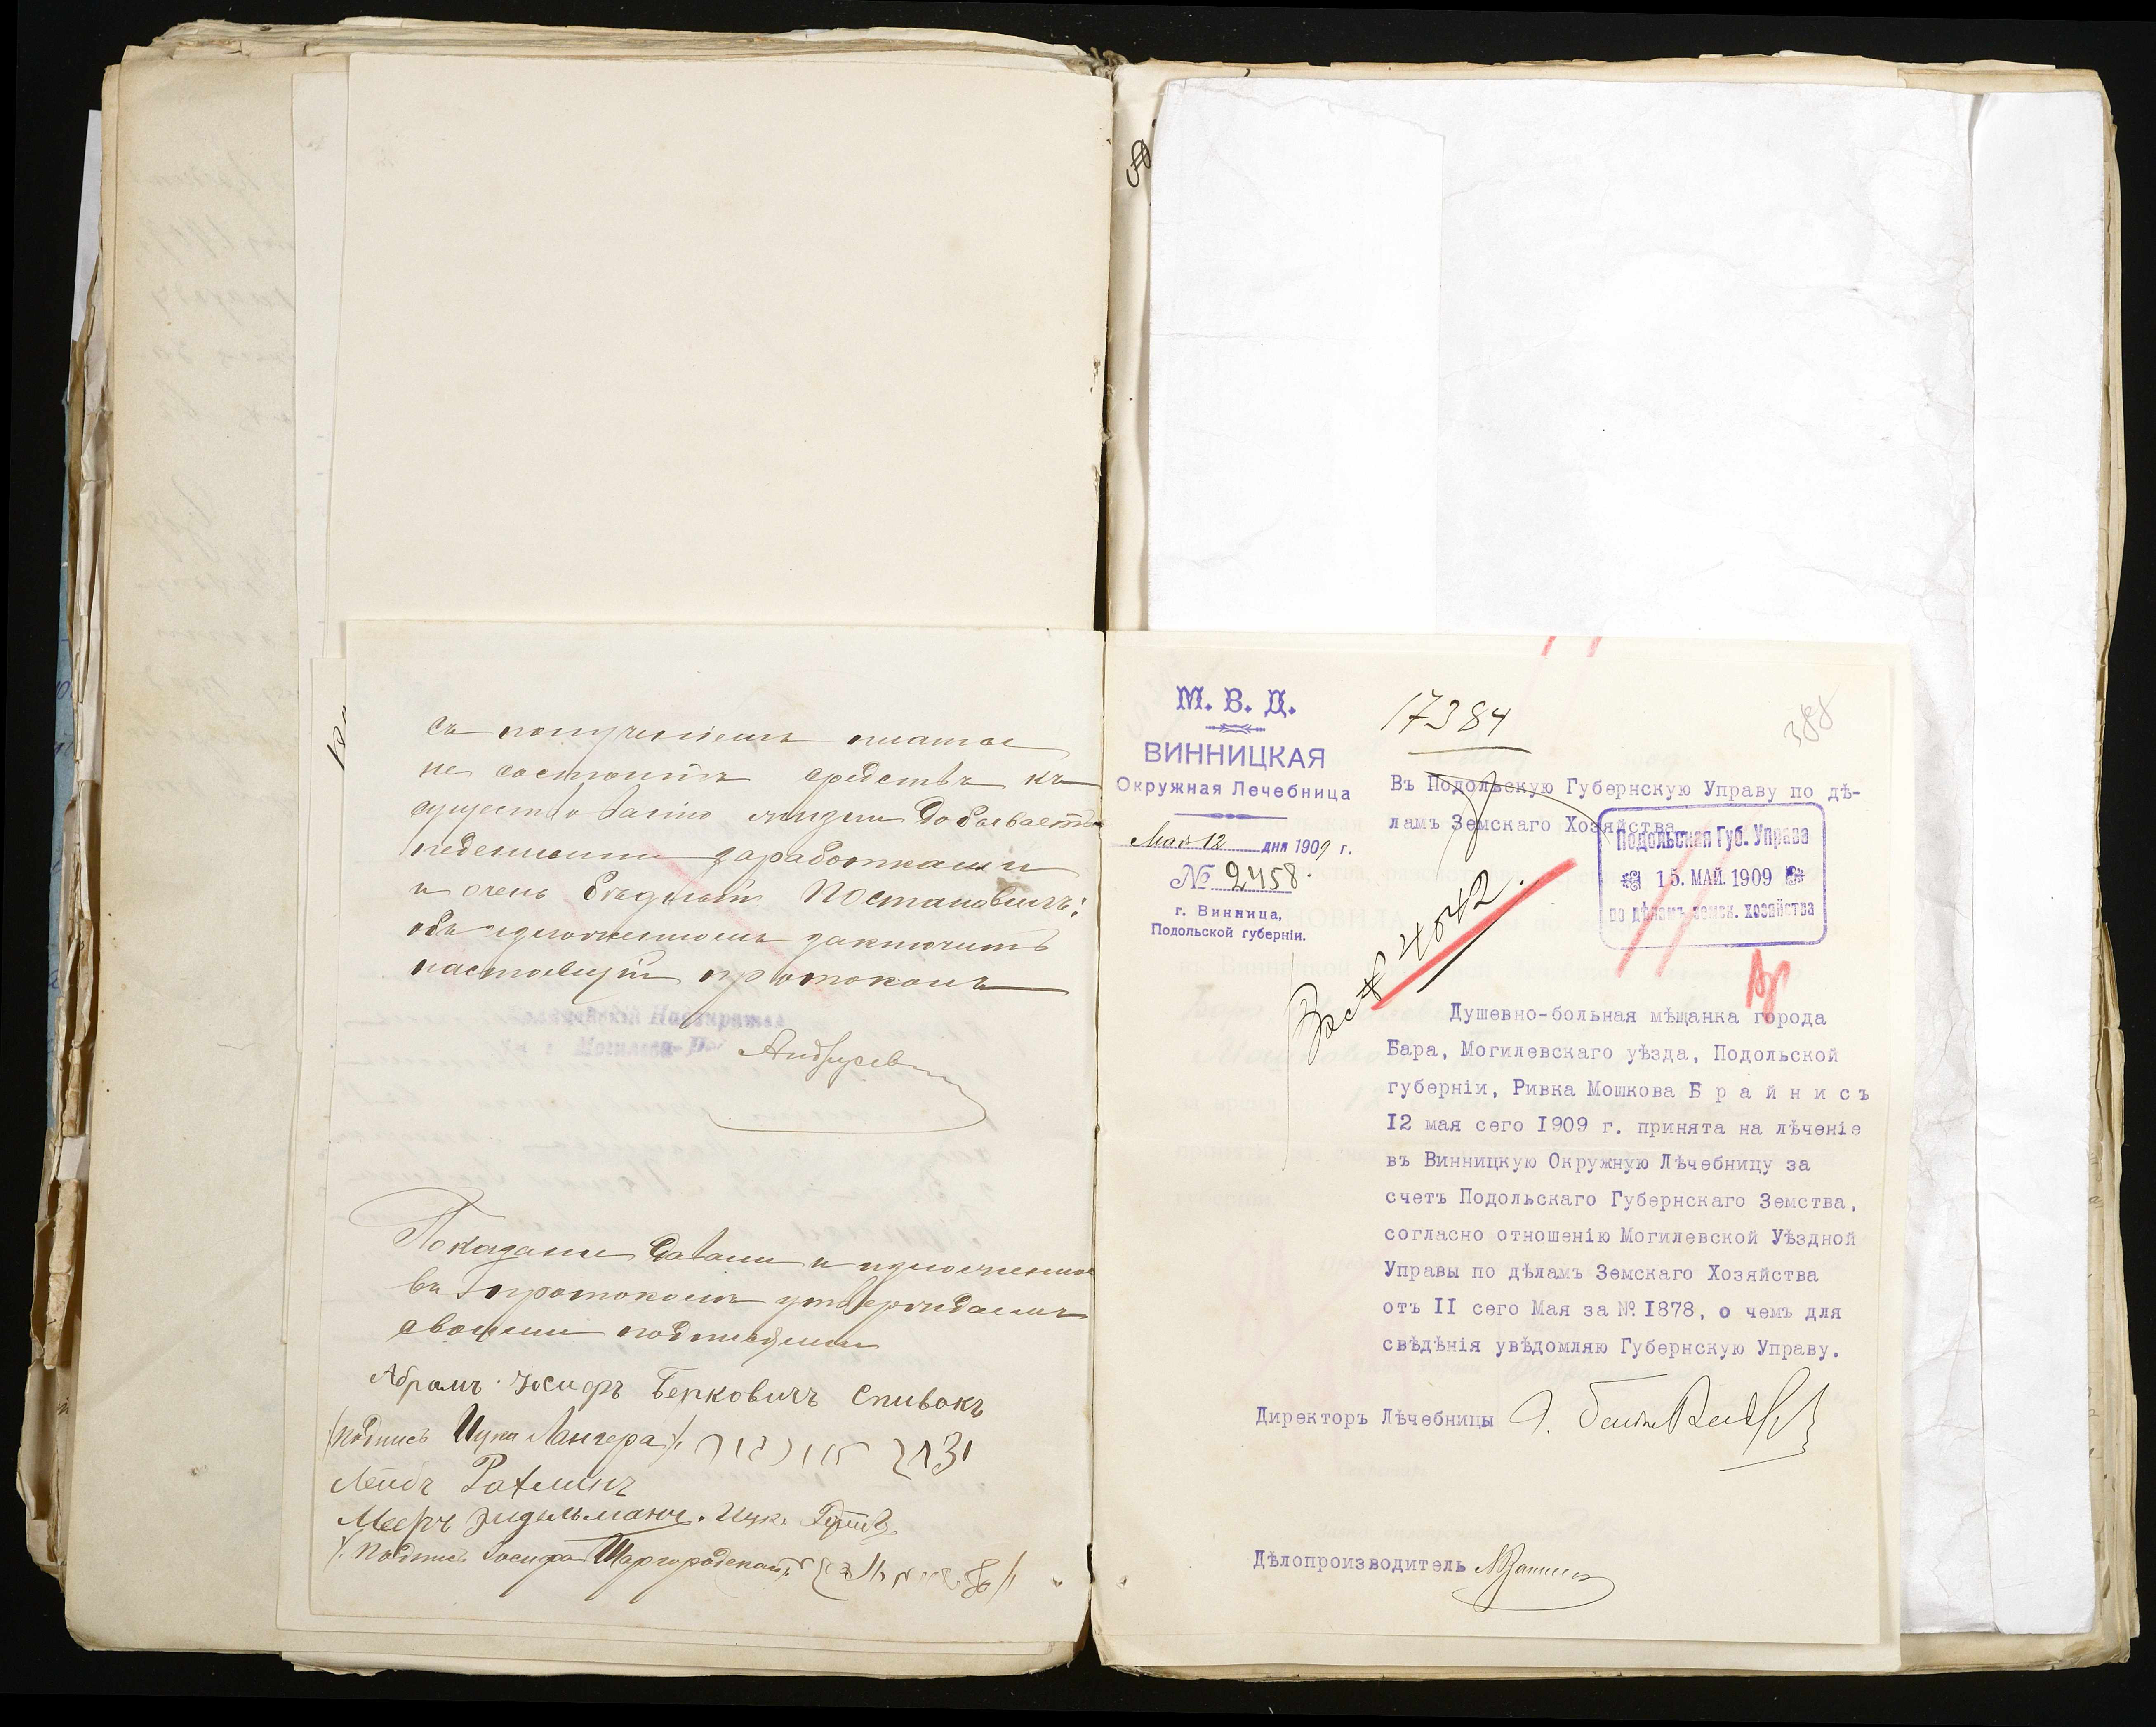 съ полученіемъ платы
не состоитъ средствъ къ
существованію жизни добываетъ
поденными заработками
и очень бѣдный. Постановилъ:
объ изложенномъ заключить
настоящій протоколъ
Показаніе даваши и изложенное
въ протоколѣ утверждаемъ
своими подписями
Абрамъ Іосифъ Берковичъ Спивокъ
(подпись Ицка Лангера)
Лейбъ
Мееръ Зидельманъ. Ицко
(Подпись Іосифа Шаргородскаго
М. В. Д.
ВИННИЦКАЯ
Окружная Лечебница
Мая 12 дня 1909 г.
№ 2458.
г. Винница,
Подольской губерніи.
17384
388
Въ Подольскую Губернскую Управу по дѣ-
ламъ Земскаго Хозяйства
Подольская Губ. Управа
15. МАЙ. 1909
по дѣламъ земск. хозяйства
4642.
Душевно-больная мѣщанка города
Бара, Могилевскаго уѣзда, Подольской
губерніи, Ривка Мошкова Б р а й н и с ъ
12 мая сего 1909 г. принята на лѣченіе
въ Винницкую Окружную Лѣчебницу за
счетъ Подольскаго Губернскаго Земства,
согласно отношенію Могилевской Уѣздной
Управы по дѣламъ Земскаго Хозяйства
отъ II сего Мая за № 1878, о чемъ для
свѣдѣнія увѣдомляю Губернскую Управу.
Директоръ Лѣчебницы
Дѣлопроизводитель